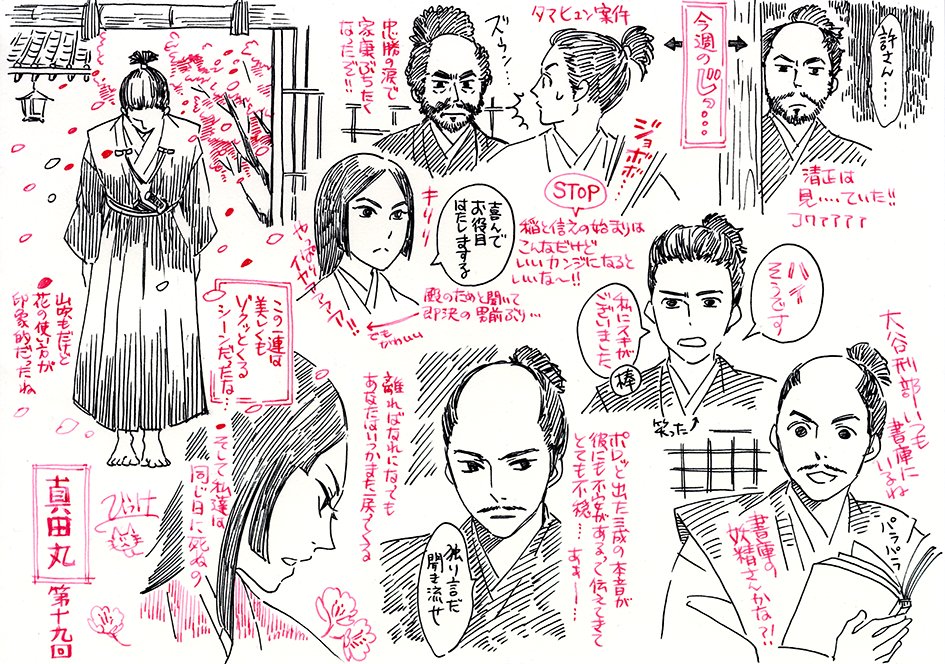 今週のじっ…
許さん…
清正は
見……ていた!!
コワァァァァ
タマヒュン案件
ズゥン…
忠勝の涙で
家康ぶったく
なったで!!
ジョボボ…
STOP
稲と信之の始まりは
こんなだけど
いいカンジになると
いいな〜!!
喜んで
お役目
はたしまする
キリリ
殿のためと聞いて
即決の男前ぶり…
ハイ
そうです
私にスキが
ございました
棒
笑った
大谷刑部いつも
書庫に
いるよね
書庫の
妖精さんかな?!
パラパラ
ポしッと出た三成の本音が
彼にも不安があるって伝えてきて
とても不穏…
あぁー……
独り言だ
聞き流せ
離ればなれになっても
あなたはいつかまた戻ってくる
そして私達は
同じ日に死ぬの
この一連は
美しくも
ゾクッとくる
シーンだったな…
山吹もだけど
花の使い方が
印象的だったね
真田丸
第十九回